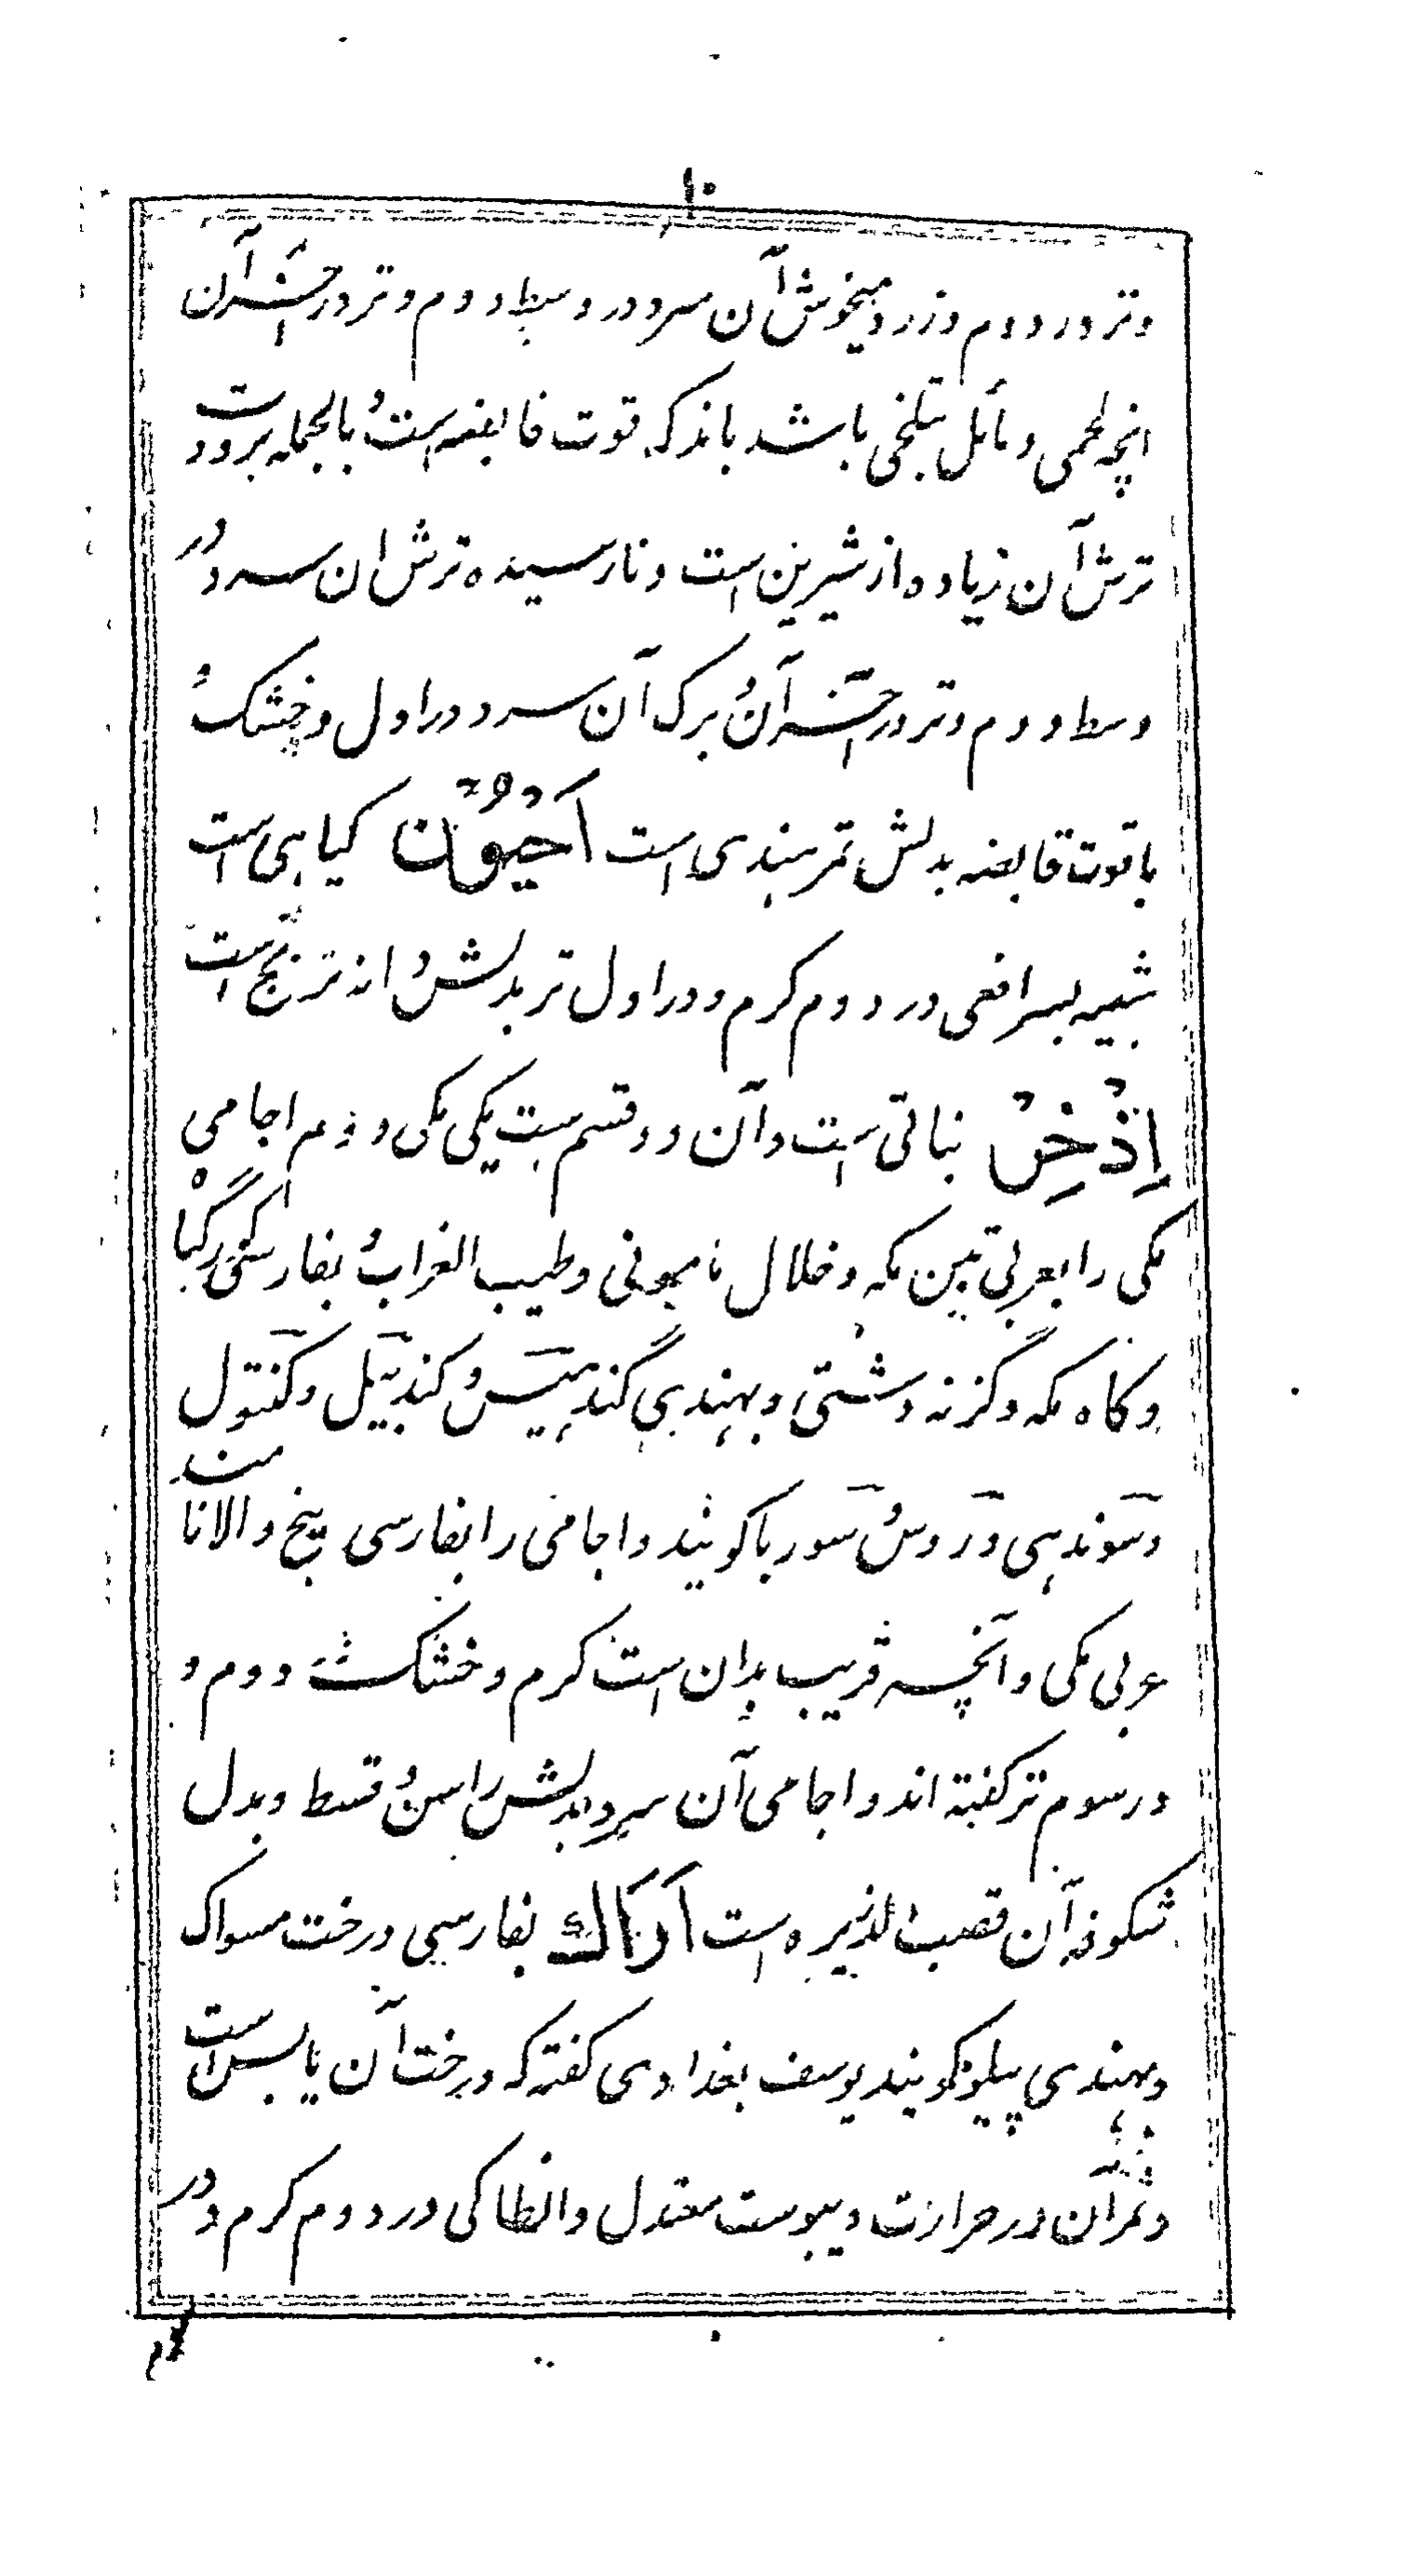 ۱۰
وتر در دوم و زرد و میخوش آن سرد در وسط دوم و تر در آخر آن
انچه لحمی و مائل بتلخی باشد باندکه قوت قابضه است و بالجمله برودت
ترش آن زیاده از شیرین است و نارسیده ترش ان سرد در
وسط دوم و تر در آخر آن و برک آن سرد در اول و خشک و
با قوت قابضه بدلش تمر هندی است اَخیُون کیاهی است
شبیه بسر افعی در دوم کرم و در اول تر بدلش و انه ترنج است
اِذْخِر نباتی است و آن دو قسم ست یکی مکی دوم اجامی
مکی را بعربی تبن مکه و خلال مامونی و طیب الغراب و بفارسی گورگیا
وکاه مکه و گزنه دشتی و بهندی گندهیس و کندبیل و کنتول
وسوندهی و روس و سوربا کویند و اجامی را بفارسی بیخ والانامند
عربی مکی و آنچه قریب بدان است کرم و خشک در دوم و
در سوم تر کفته اند و اجامی آن سرد بدلش راسن و قسط و بدل
شکوفه آن قصب الذریره است اَرَاک بفارسی درخت مسواک
وبهندی پیلو کویند یوسف بغدادی کفته که درخت آن یابس است
و ثمر آن در حرارت و یبوست معتدل و انطاکی در دوم کرم و در